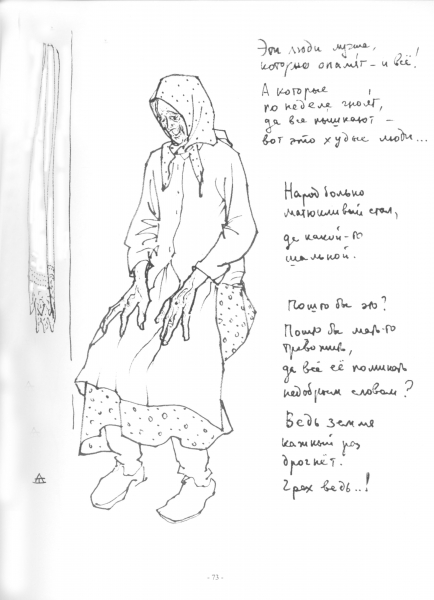 Эти люди лучше,
которые опалят – и всё!
А которые
по неделе гноят,
да все пышкают –
вот это худые люди...
Народ больно
матюкливый стал,
да какой-то
шальной.
Пошто бы это?
Пошто бы мать-то
тревожить,
да всё её поминать
недобрым словом?
Ведь земля
кажный раз
дрогнёт.
Грех ведь..!
- 73 -